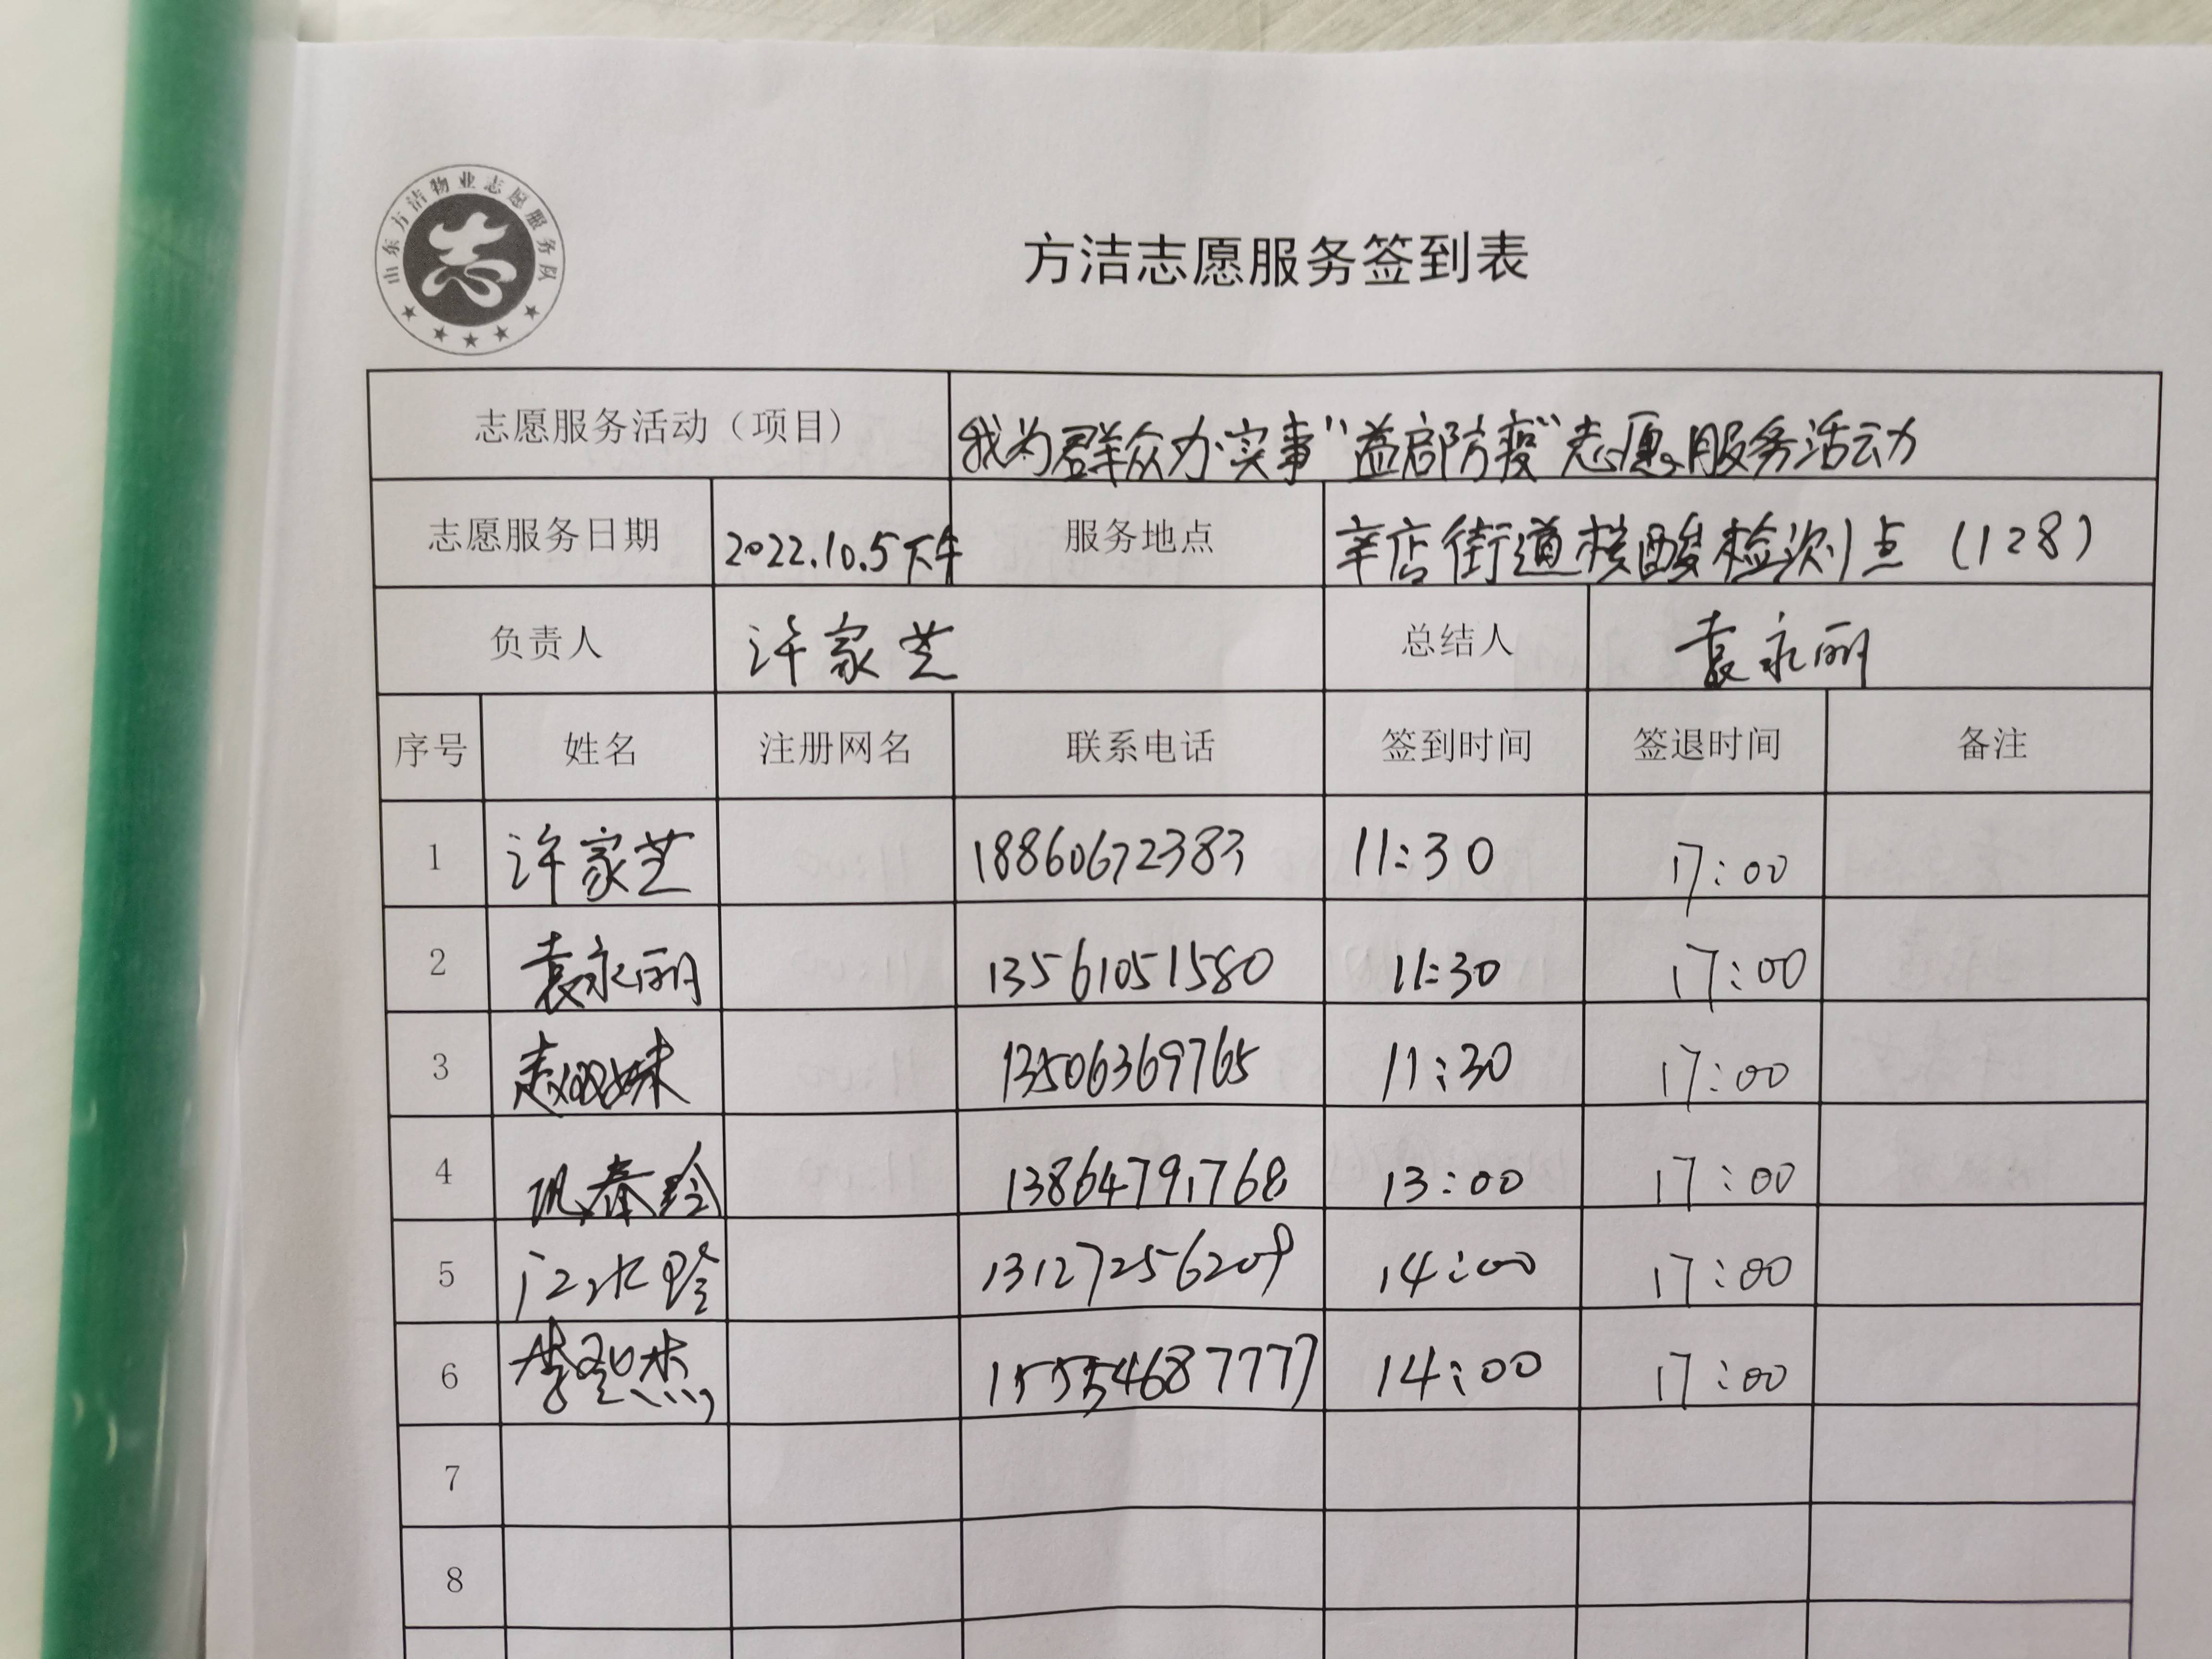 山东方洁物业志愿服务队
志
方洁志愿服务签到表
志愿服务活动（项目） 我为群众办实事"益启防疫"志愿服务活动
志愿服务日期 2022.10.5下午 服务地点 辛店街道核酸检测点（128）
负责人 许家芝 总结人 袁永丽
序号 姓名 注册网名 联系电话 签到时间 签退时间 备注
1 许家芝 18860672383 11:30 17:00
2 袁永丽 13561051580 11:30 17:00
3 13506369765 11:30 17:00
4 13864791768 13:00 17:00
5 13127256209 14:00 17:00
6 15554687777 14:00 17:00
7
8